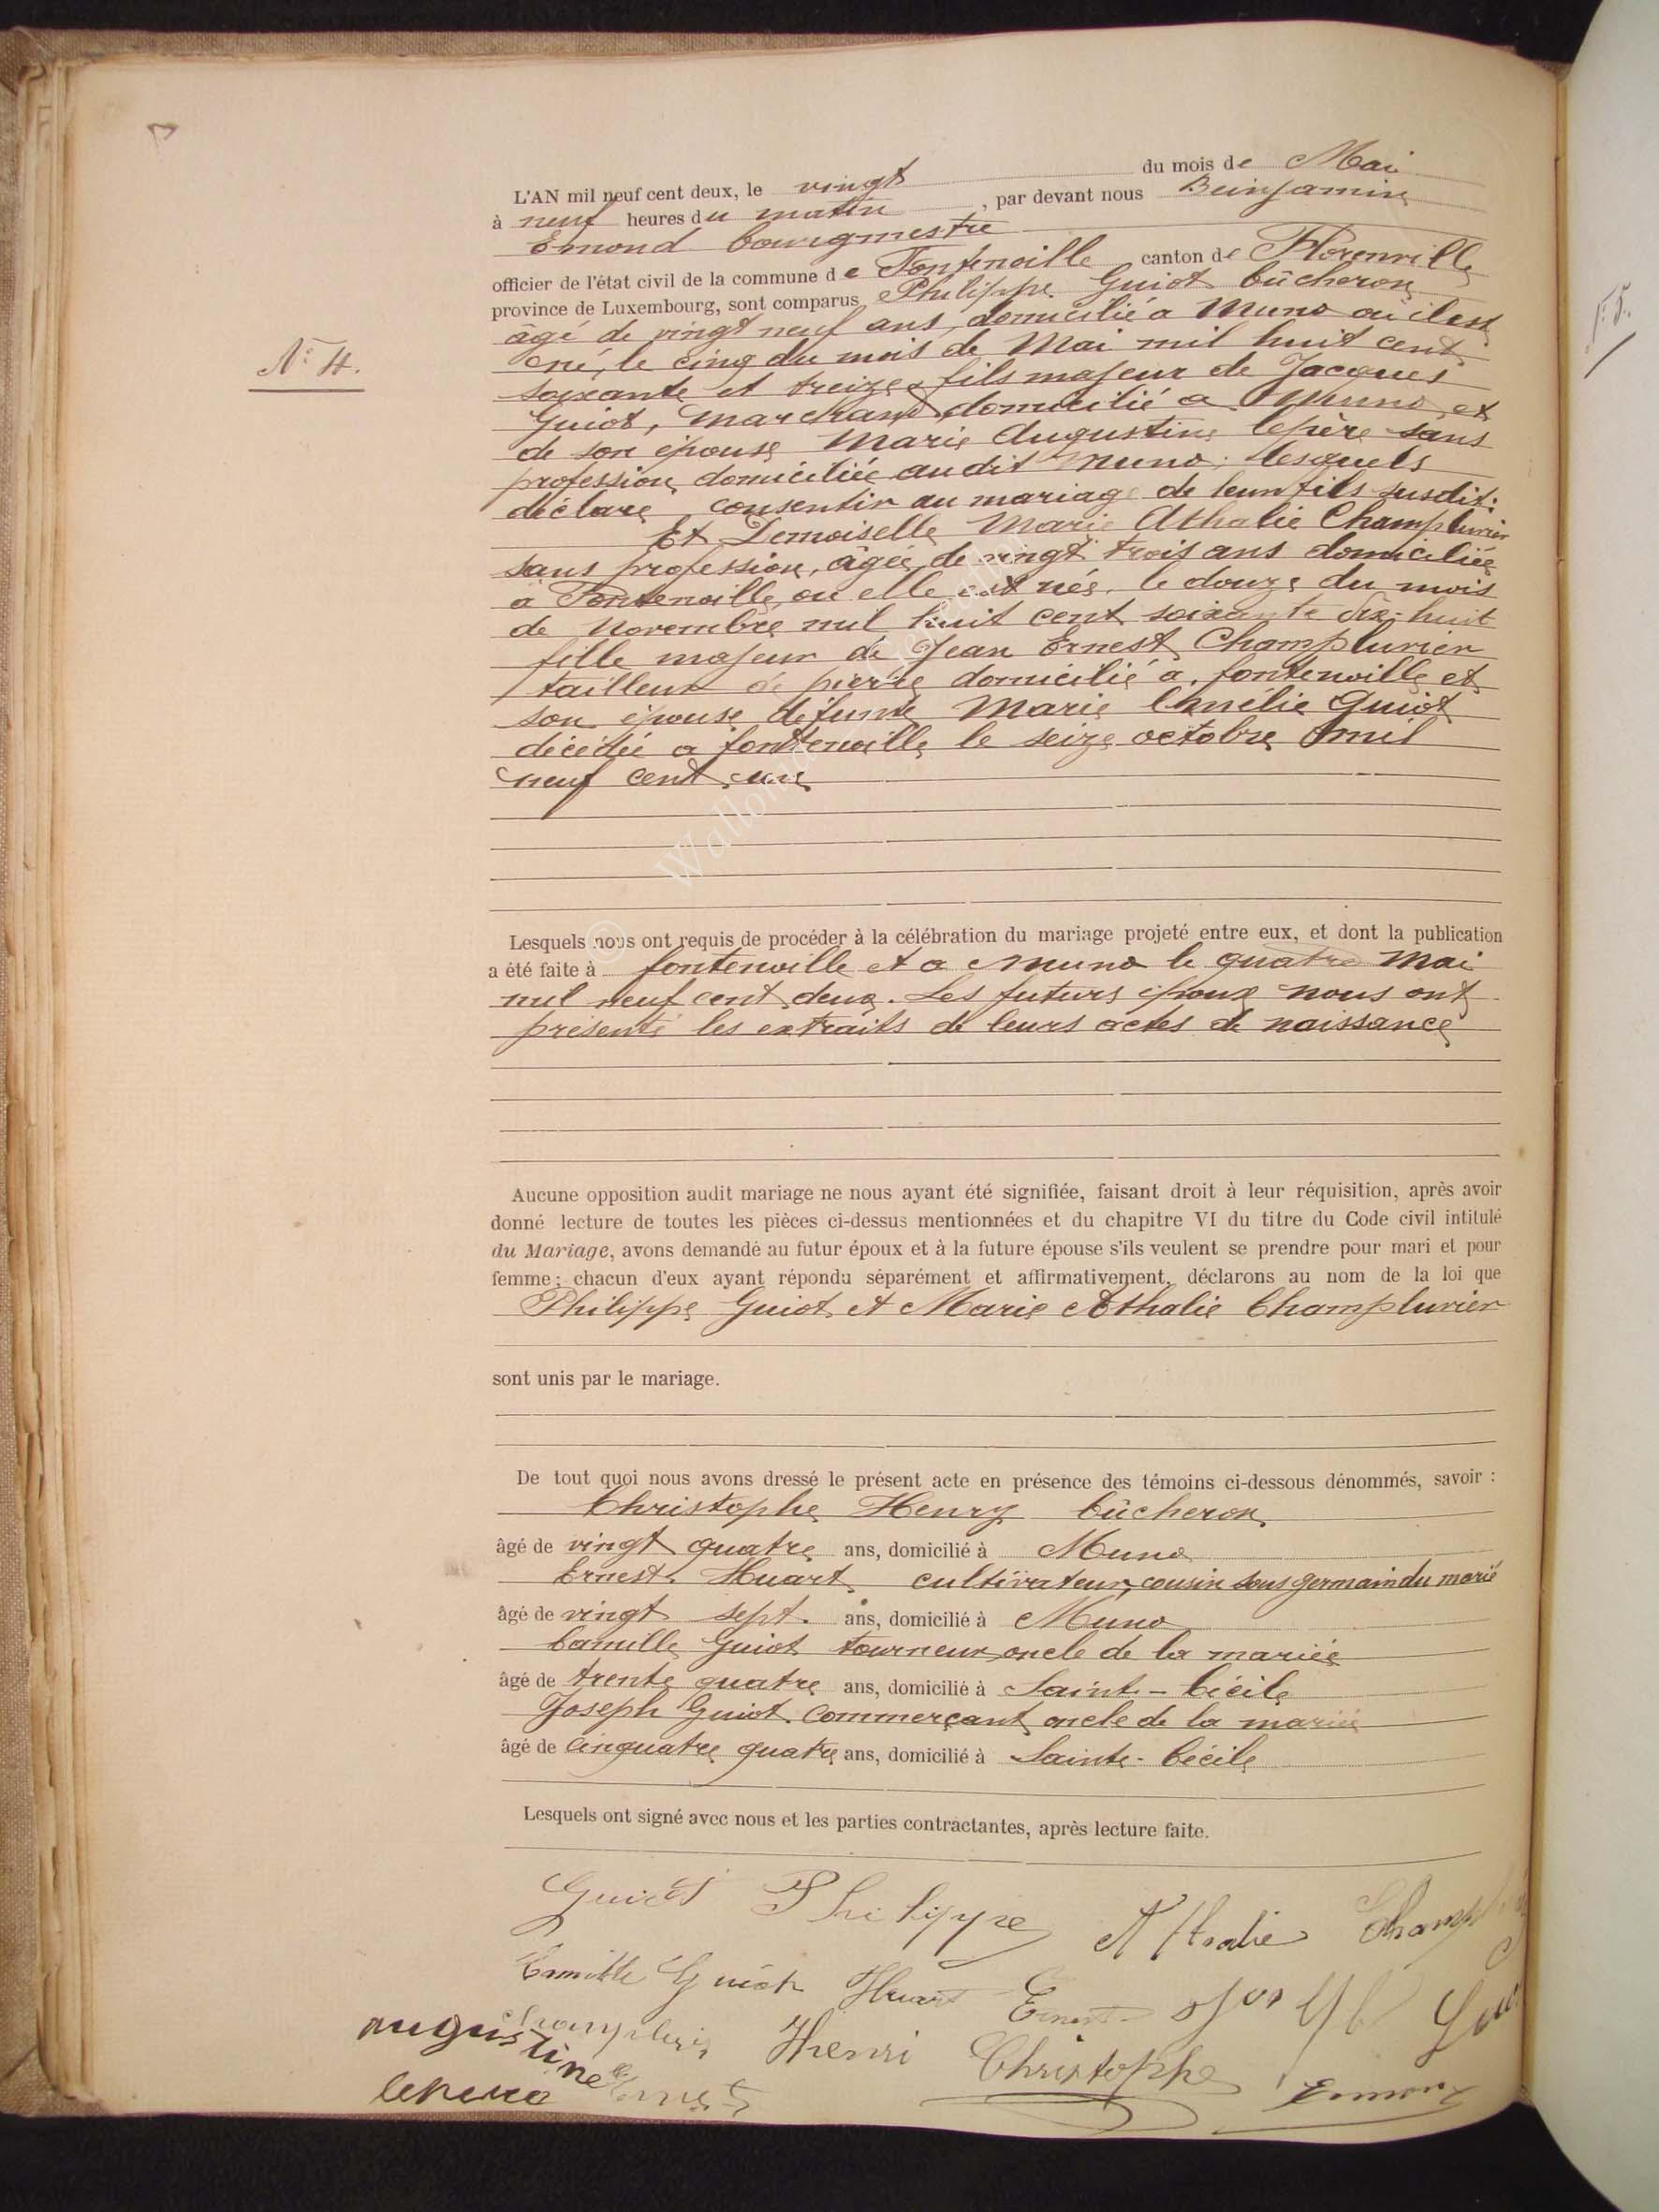 L'AN mil neuf cent deux, le vingt du mois de Mai
à neuf heures du matin, par devant nous Beinjamin
Emond bourgmestre
officier de l'état civil de la commune de Fontenoille canton de Florenville
province de Luxembourg, sont comparus Philippe Guiot bûcheron
âgé de vingt neuf ans, domicilié a Muno ou il est
né, le cinq du mois de Mai mil huit cent
N° 4.
soixante et treize, fils majeur de Jacques
Guiot, marchand, domicilié a Muno, et
de son épouse Marie Augustine Lepère sans
profession, domiciliée audit Muno; lesquels
déclare consentir au mariage de leur fils susdit;
Et Demoiselle Marie Athalie Champlurier
sans profession, âgée, de vingt trois ans domiciliée
a Fontenoille, ou elle est née, le douze du mois
de Novembre mil huit cent soixante dix-huit
fille majeur de Jean Ernest Champlurier
tailleur de pierre domicilié a fontenoille et
son épouse défunte Marie Amélie Guiot
décédée a fontenoille le seize octobre mil
neuf cent un
© Wallonie
Lesquels nous ont requis de procéder à la célébration du mariage projeté entre eux, et dont la publication
a été faite à fontenoille et a Muno le quatre Mai
mil neuf cent deux. Les futurs époux nous ont
présenté les extraits de leurs actes de naissance
Aucune opposition audit mariage ne nous ayant été signifiée, faisant droit à leur réquisition, après avoir
donné lecture de toutes les pièces ci-dessus mentionnées et du chapitre VI du titre du Code civil intitulé
du Mariage, avons demandé au futur époux et à la future épouse s'ils veulent se prendre pour mari et pour
femme; chacun d'eux ayant répondu séparément et affirmativement, déclarons au nom de la loi que
Philippe Guiot et Marie Athalie Champlurier
sont unis par le mariage.
De tout quoi nous avons dressé le présent acte en présence des témoins ci-dessous dénommés, savoir :
Christophe Henry bûcheron
âgé de vingt quatre ans, domicilié à Muno
Ernest Huart cultivateur, cousin sous germain du marié
âgé de vingt sept. ans, domicilié à Muno
Camille Guiot tourneur, oncle de la mariée
âgé de trente quatre ans, domicilié à Saint-Cécile
Joseph Guiot commerçant oncle de la mariée
âgé de cinquatre quatre ans, domicilié à Sainte-Cécile
Lesquels ont signé avec nous et les parties contractantes, après lecture faite.
Guiot Philippe Athalie
Camille Guiot Huart Ernest
Henri Christophe
augustine
Ernest